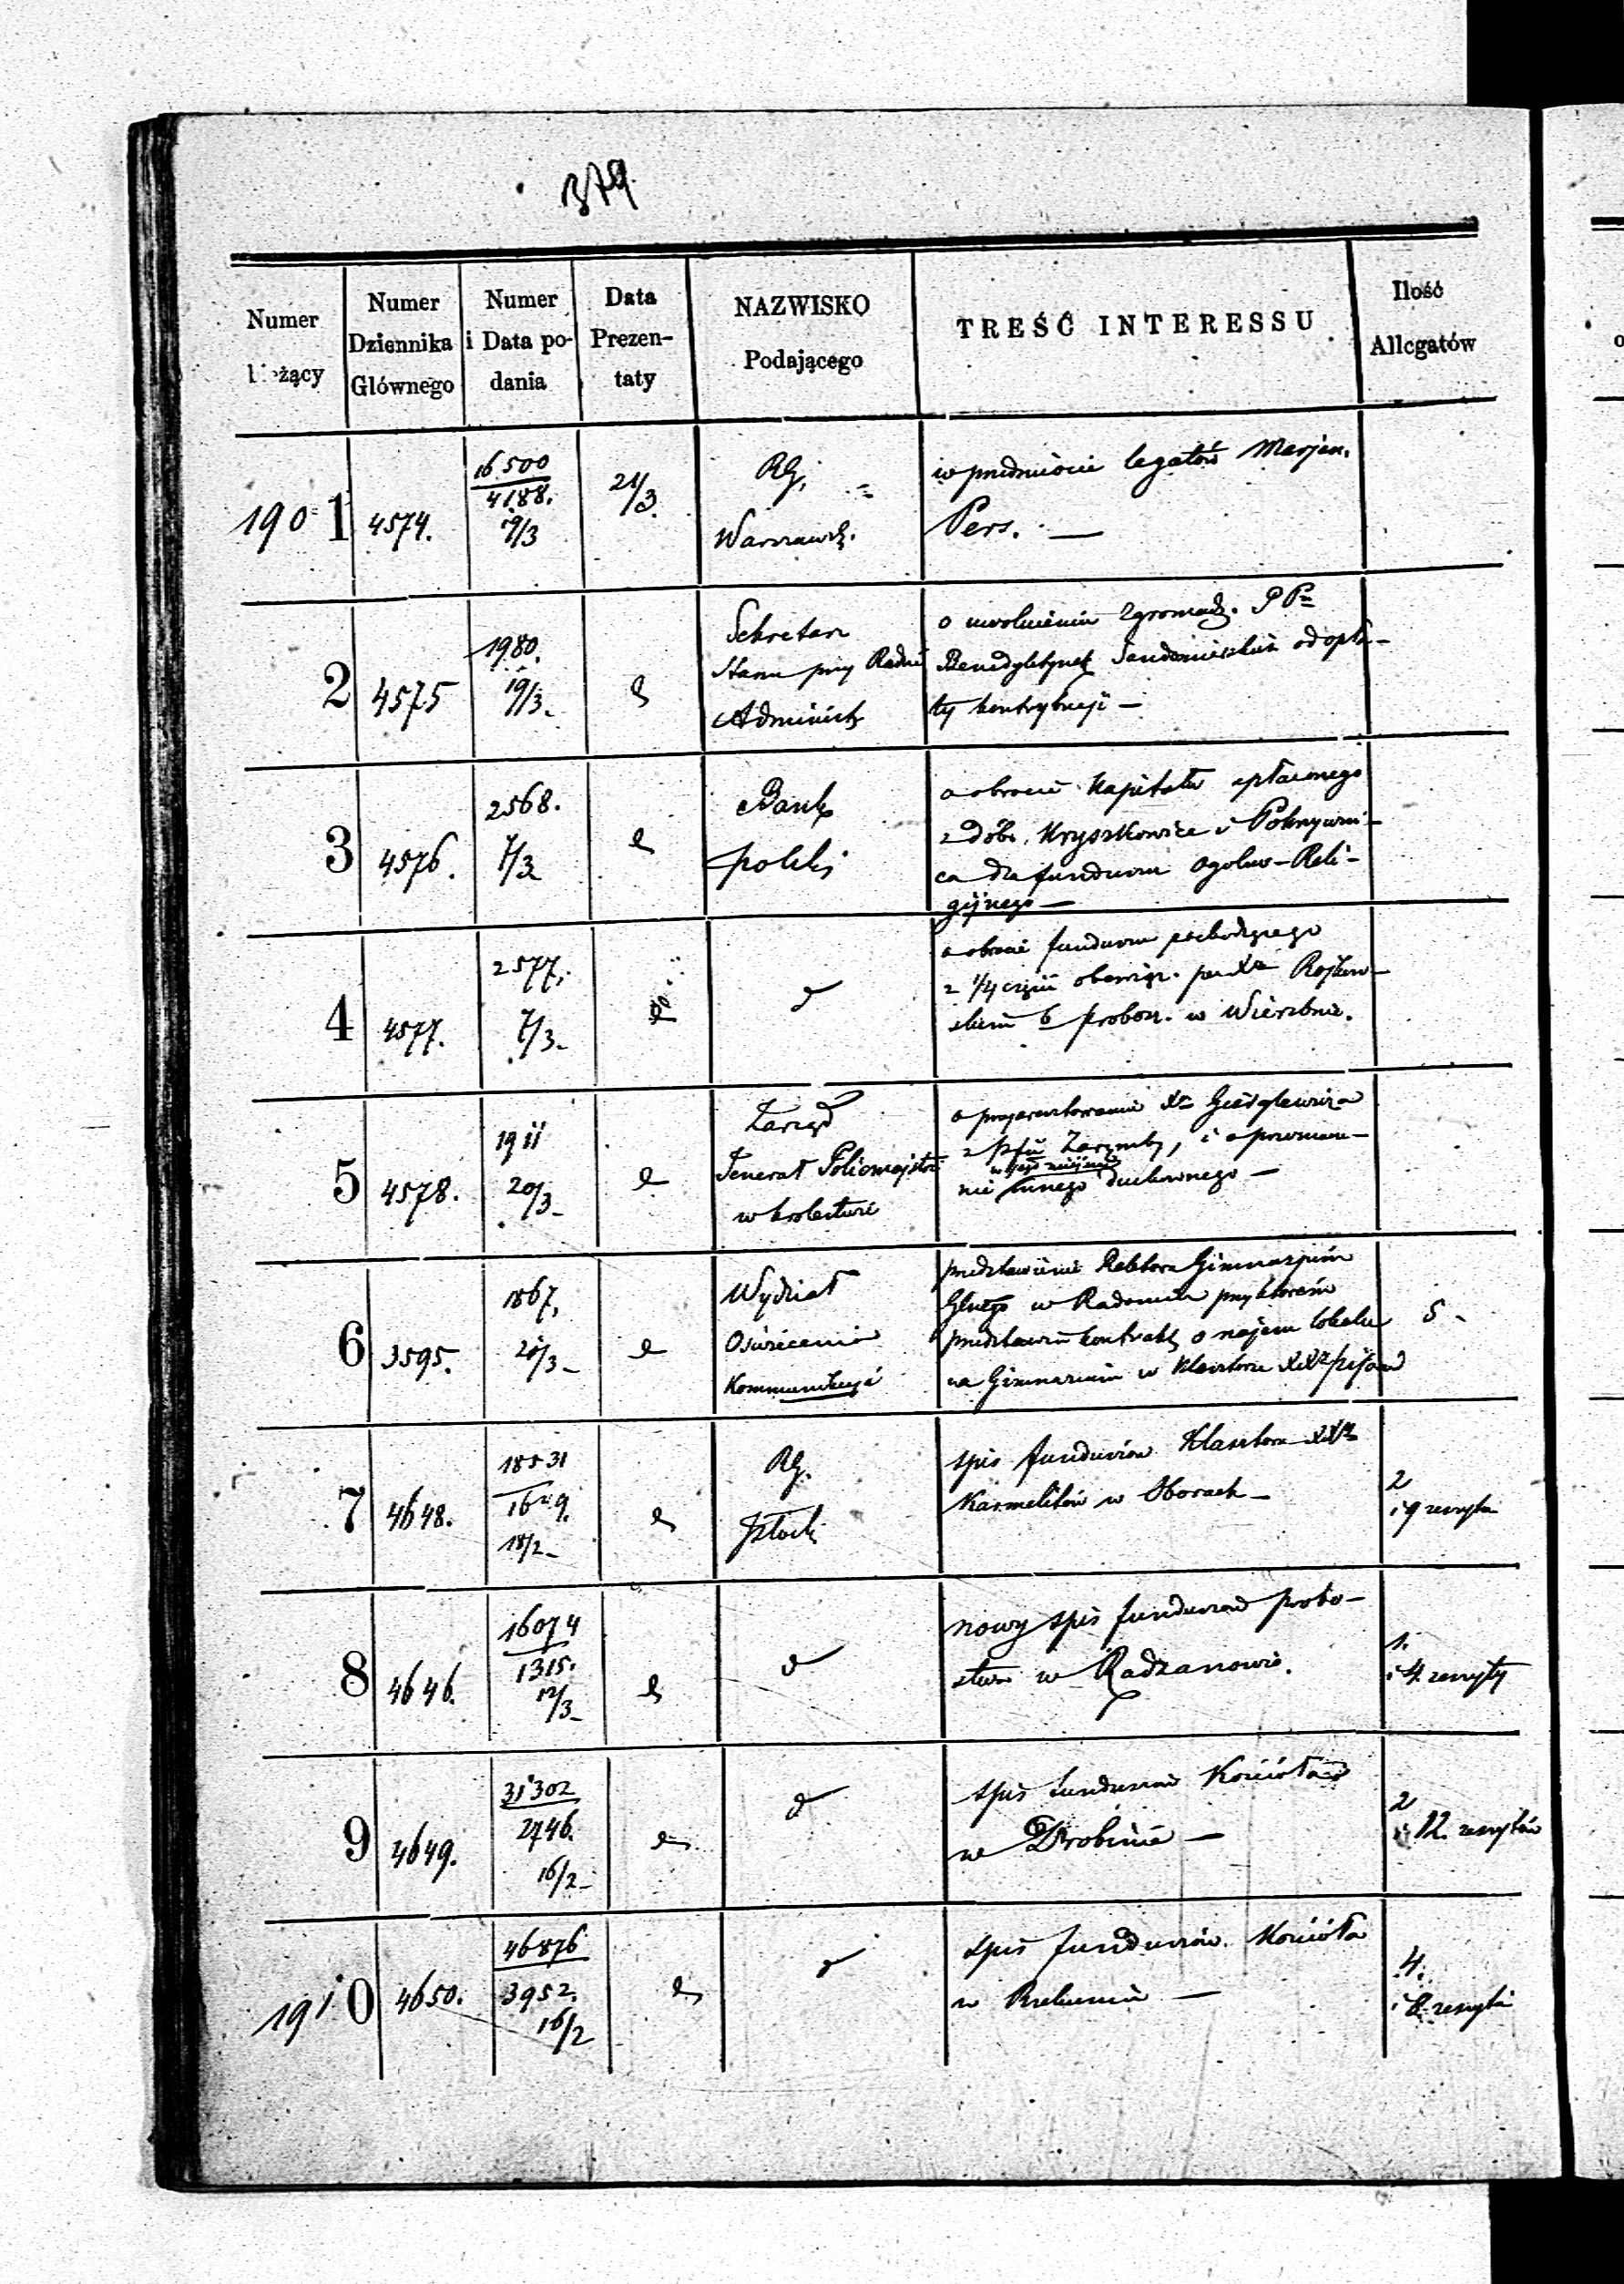 379
Numer bieżący
Numer Dziennika Głównego
Numer i Data podania
Data Prezentaty
NAZWISKO Podającego
TREŚĆ INTERESSU
Ilość Allegatów
1901 4574. 16500 4188. 19/3 21/3. RG. Warszawsk.
w przedmiocie legatów Marjan.
Pers. —
2 4575 1980. 19/3.
Sekretarz
Stanu przy Radzie
Administ
o uwolnienie Zgromadz. PP
Benedyktynek Sandomierskich od opła-
ty kontrybucji —
3 4576. 2568. 7/3
Bank
polski
o obrocie Kapitału spłaconego
z dóbr. Kryszkowice i Pokrzywni-
ca dla funduszu ogólno-Reli-
gijnego —
4 4577. 2577. 7/3.
o obrocie funduszu pochodzącego
z 1/4 części obowiąz. po
b probosz. w Wierzbnie.
5 4578. 1911 20/3.
Zarząd
Jenerał Policmajstra
w królestwie
i o
w jego miejsce
nie innego duchownego —
6 3595. 1867. 20/3.
Wydział
Oświecenia
Kommunikuje
przedstawienie Rektora Gimnazjum
w Radomiu przy którem
przedstawia kontrakt o najem lokalu
na Gimnazium w Klasztorze XX Pijarów
5 -
7 4648. 18531 1629. 18/2.
RG.
Płock
spis funduszów Klasztoru XX
Karmelitów w Oborach —
2
i 9 zeszytów
8 4646. 16074 1315. 12/3.
nowy spis funduszów probo-
stwa w Radzanowie.
1.
i 4. zeszyty
9 4649. 31302 2746. 16/2.
spis funduszów Kościoła
w Drobinie —
2
i 12. zeszytów
1910 4650. 46876 3952. 16/2
spis funduszów Kościoła
w —
4.
i 8. zeszytów